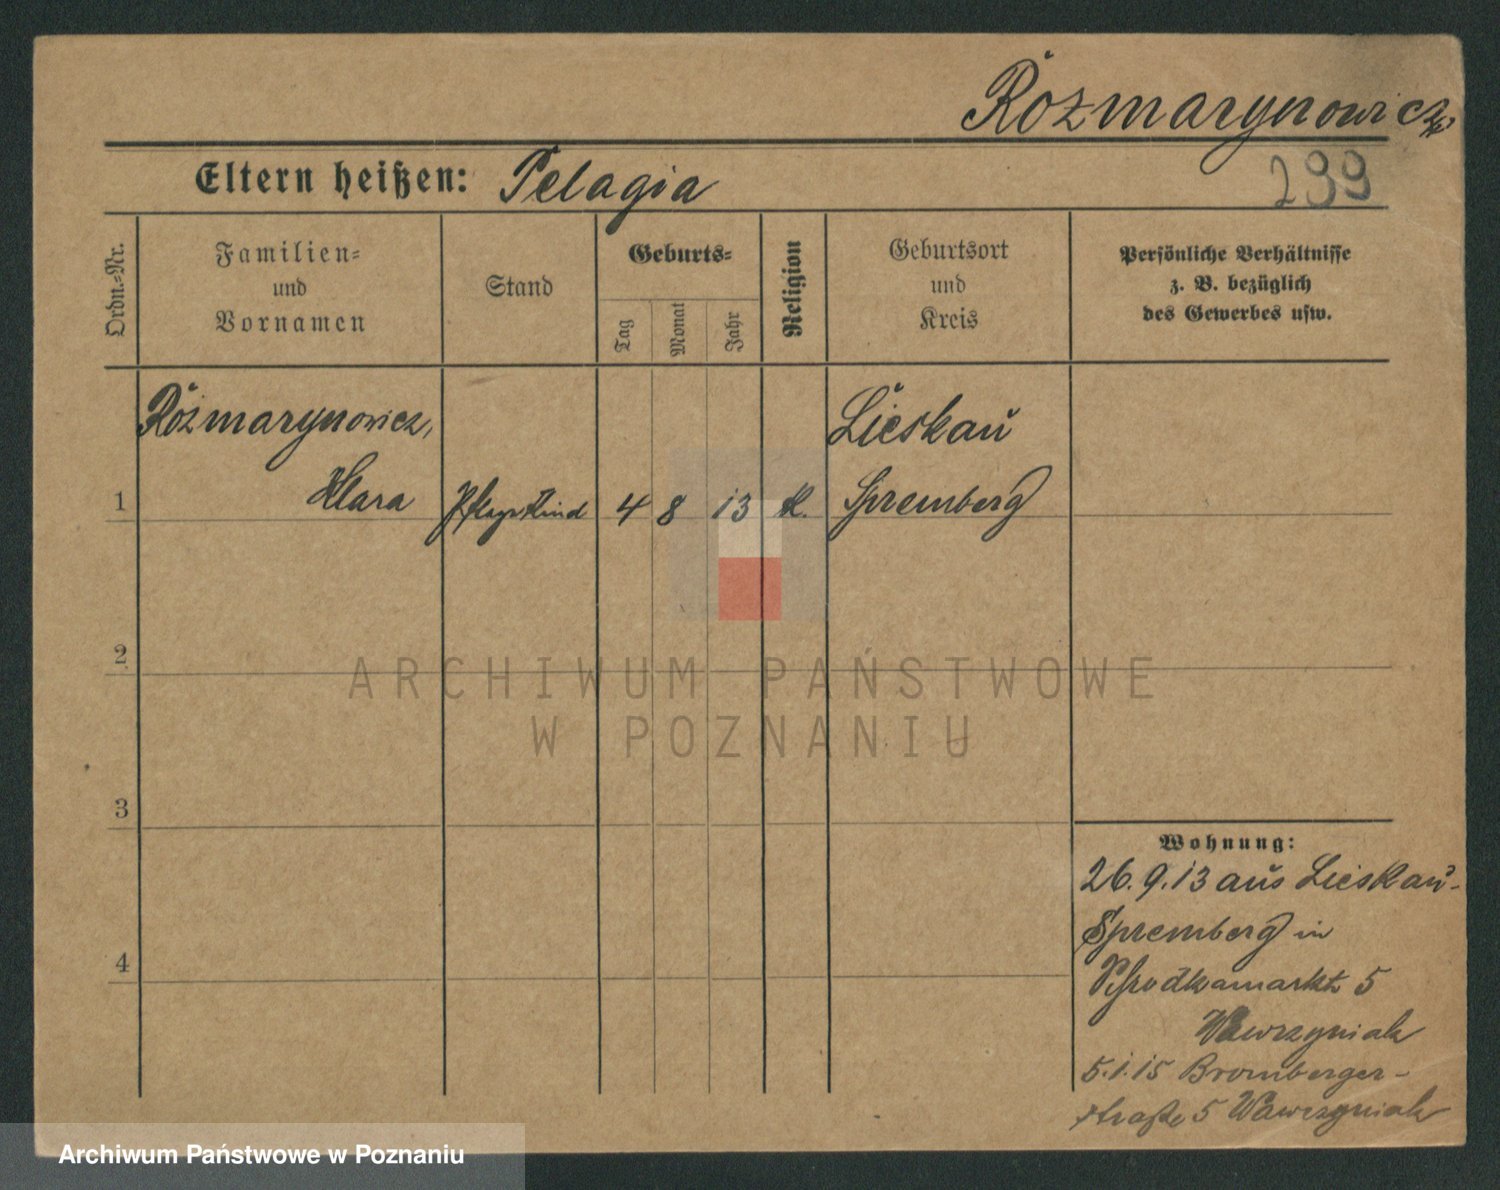 Rozmarynowicz
299
Eltern heißen: Pelagia
Ordn.-Nr.
Familien-
und
Vornamen
Stand
Geburts-
Tag
Monat
Jahr
Religion
Geburtsort
und
Kreis
Persönliche Verhältnisse
z. B. bezüglich
des Gewerbes usw.
Rozmarynowicz,
Lieskau
1 Klara Pflegekind 4 8 13 K. Spremberg
2
ARCHIWUM PAŃSTWOWE
W POZNANIU
3
Wohnung:
26.9.13 aus Lieskau-
Spremberg in
4
Schrodkamarkt 5
Wawrzyniak
5.1.15 Bromberger-
straße 5 Wawrzyniak
Archiwum Państwowe w Poznaniu